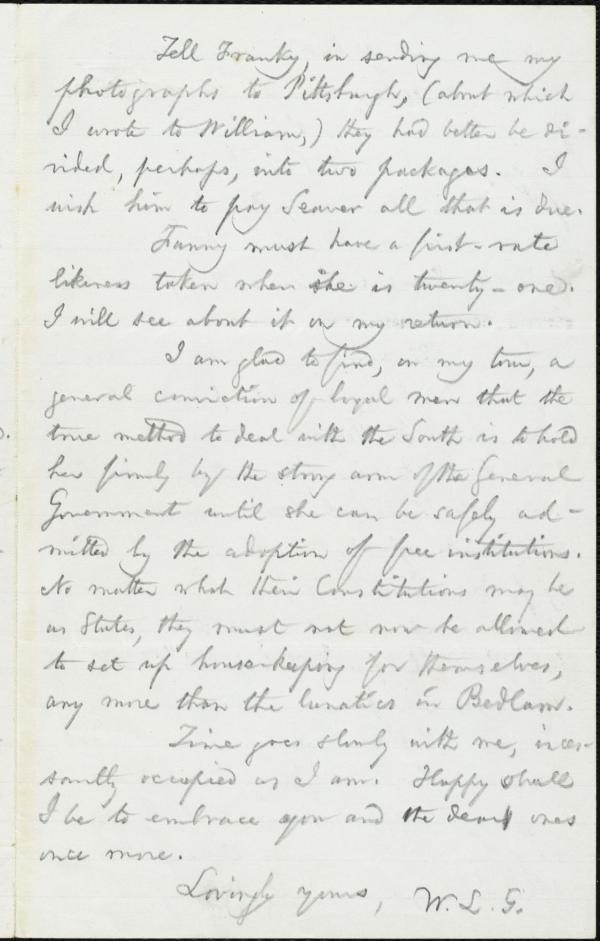 Tell Franky, in sending me my
photographs to Pittsburgh, (about which
I wrote to William,) they had better be di-
vided, perhaps, into two packages. I
wish him to pay Seaver all that is due.
Fanny must have a first-rate
likeness taken when she is twenty-one.
I will see about it on my return.
I am glad to find, on my tour, a
general conviction of loyal men that the
true method to deal with the South is to hold
her firmly by the strong arm of the General
Government until she can be safely ad-
mitted by the adoption of free institutions.
No matter what their Constitutions may be
as States, they must not now be allowed
to set up housekeeping for themselves,
any more than the lunatics in Bedlam.
Time goes slowly with me, inces-
santly occupied as I am. Happy shall
I be to embrace you and the dear ones
once more.
Lovingly yours, W. L. G.